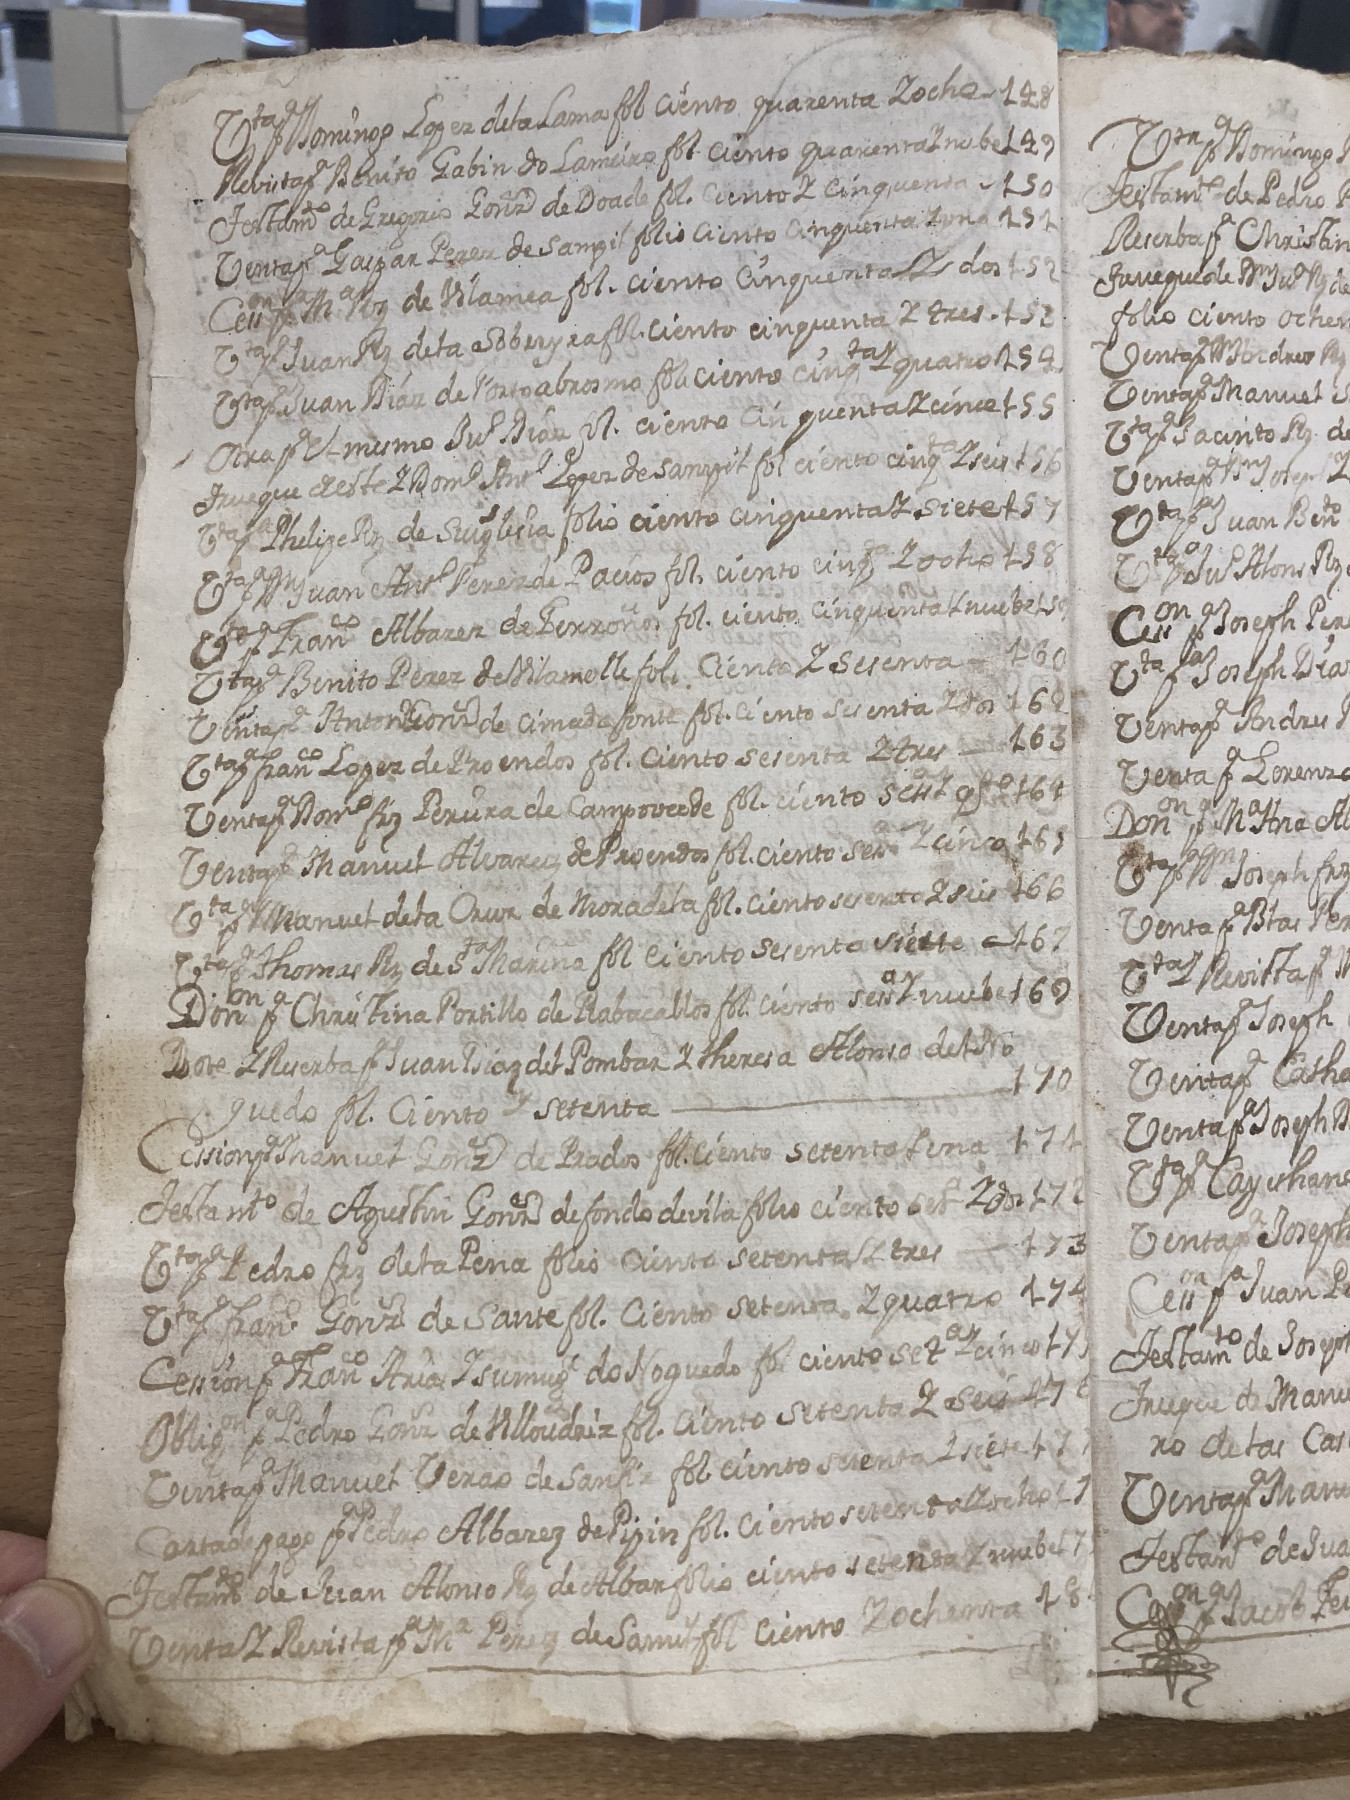 Vta pa Domingo Lopez de la Lama fol ciento quarenta Y ocho 148
Revista pa Benito Gabin do Lameiro fol. ciento quarenta Y nube 149
Testamto de Gregorio Gonz de Doade fol. ciento Y cinquenta 150
Venta pa Gaspar Perez de Sanxil folio ciento cinquenta Y una 151
Cesson pa Ma Rz de Vilamea fol. ciento cinquenta Y dos 152
Vta pa Juan Rz de la fol. ciento cinquenta Y tres 153
Vta pa Juan Diaz de Portoabrosmo fol. ciento cinqta Y quatro 154
Otra pa el mesmo Jun Diaz fol. ciento cinquenta Y cinco 155
Trueque de este Y Domo Anto Lopez de Sanxil fol ciento cinqta Y seis 156
Vta pa Phelipe Rz de folio ciento cinquenta Y siete 157
Vta pa Juan Anto Perez de Pacios fol. ciento cinqta Y ocho 158
Vta pa Franco Albarez de fol. ciento cinquenta Y nuebe 159
Vta pa Benito Perez de Vilamelle fol. Ciento Y Sesenta 160
Venta pa Anton Gonz de Cimadafonte fol. ciento sesenta Y dos 162
Vta pa franco Lopez de Proendos fol. ciento sesenta Y tres 163
Venta pa Domo frz Perura de Campoverde fol. ciento sesta Y qto 164
Venta pa Manuel Alvarez de Proendos fol. ciento sesta Y cinco 165
Vta pa Manuel de la Cruz de Moradela fol. ciento sesenta Y seis 166
Vta pa Thomas Rz de Sta Marina fol ciento sesenta Y siete 167
Donon pa Christina Portillo de Rabacallos fol. ciento sesta Y nuebe 169
Dote Y Reserba pa Juan Diaz del Pombar Y theresa Alonso del No
guedo fol. Ciento Y setenta 170
Cession pa Manuel Gonz de Prados fol. ciento setenta Y una 171
Testamto de Agustin Gonz de fondo de vila folio ciento seta Y dos 172
Vta pa Pedro frz de la Pena folio ciento setenta Y tres 173
Vta pa franco Gonz de Sante fol. Ciento setenta Y quatro 174
Cession pa Franco Arias Y su mugr do Noguedo fol ciento seta Y cinco 175
Obligon pa Pedro Gonz de Villoudriz fol. ciento setenta Y seis 176
Venta pa Manuel Verao de San fiz fol ciento setenta Y siete 177
Carta de pago pa Pedro Albarez de Pipin fol. ciento setenta Y ocho 17
Testamto de Juan Alonso Rz de Albar folio ciento setenta Y nuebe 17
Venta Y Revista pa Ma Perez de fol ciento Y ochenta 18
Vta pa Domingo
Testamto de Pedro
Reserba pa Christin
Trueque de
folio ciento ochen
Venta pa Andres Rz
Venta pa Manuel
Vta pa Jacinto Rz de
Venta pa
Vta pa Juan Bento
Vta pa Jun Alonso Rz
Cesson pa Joseph Pere
Vta pa Joseph Dia
Venta pa Andres
Venta pa Lorenzo
Donon pa Ma Ana Al
Vta pa Joseph frz
Venta pa Blas Per
Vta Y Revista pa
Venta pa Joseph
Venta pa Catha
Venta pa Joseph
Vta pa Cayethano
Venta pa Joseph
Cesson pa Juan Pe
Testamto de Joseph
Trueque de Manu
ro de las Cas
Venta pa Manu
Testamto de Jua
Cesson pa Jacob